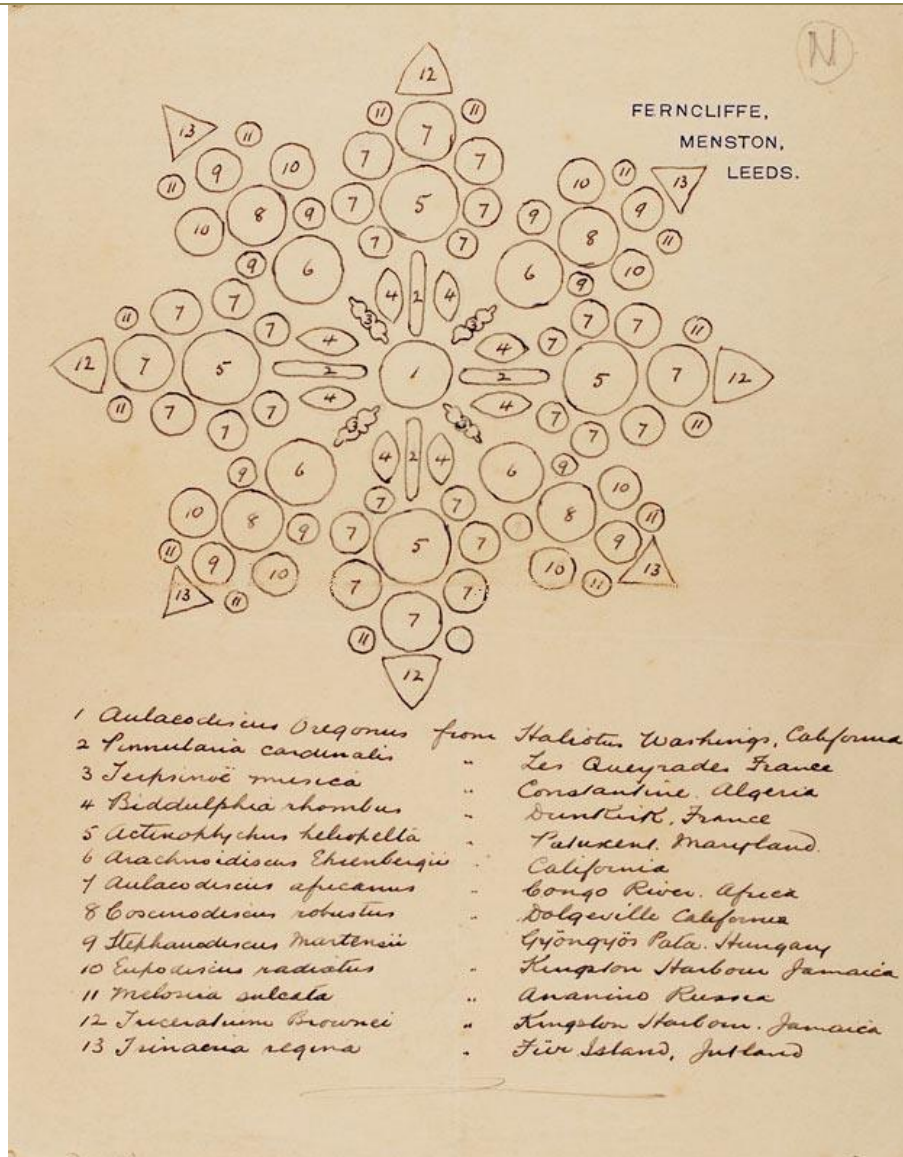 N
FERNCLIFFE,
MENSTON,
LEEDS.
12
11 11
13 11 7
9 10 7 7 10 11 13
11 8 9 7 5 7 9 8 9
10 9 6 7 7 6 9 10 11
4 2 4
7 7 3 3 7 7
11 7 4 4 7 11
12 7 5 2 1 2 5 7 12
11 7 7 4 4 7 7 11
7 3 3 7
4 2 4
9 6 6 9
10 8 9 7 7 8 10
7 5 7 11
11 9 10 7 7 10 9
13 11 7 11 13
11
12
1 Aulacodiscus Oregonus from Haliotus Washings, California
2 Pinnularia cardinalis " Les Queyrades France
3 Terpsinoë musica " Constantine. Algeria
4 Biddulphia rhombus " Dunkirk, France
5 Actinoptychus heliopelta " Patuxent. Maryland.
6 Arachnoidiscus Ehrenbergii " California
7 Aulacodiscus africanus " Congo River. Africa
8 Coscinodiscus robustus " Dolgeville California
9 Stephanodiscus Martensii Gyöngyös Pata. Hungary
10 Eupodiscus radiatus " Kingston Harbour Jamaica
11 Melosira sulcata " Ananino Russia
12 Triceratium Brownei " Kingston Harbour. Jamaica
13 Trinacria regina " Für Island, Jutland